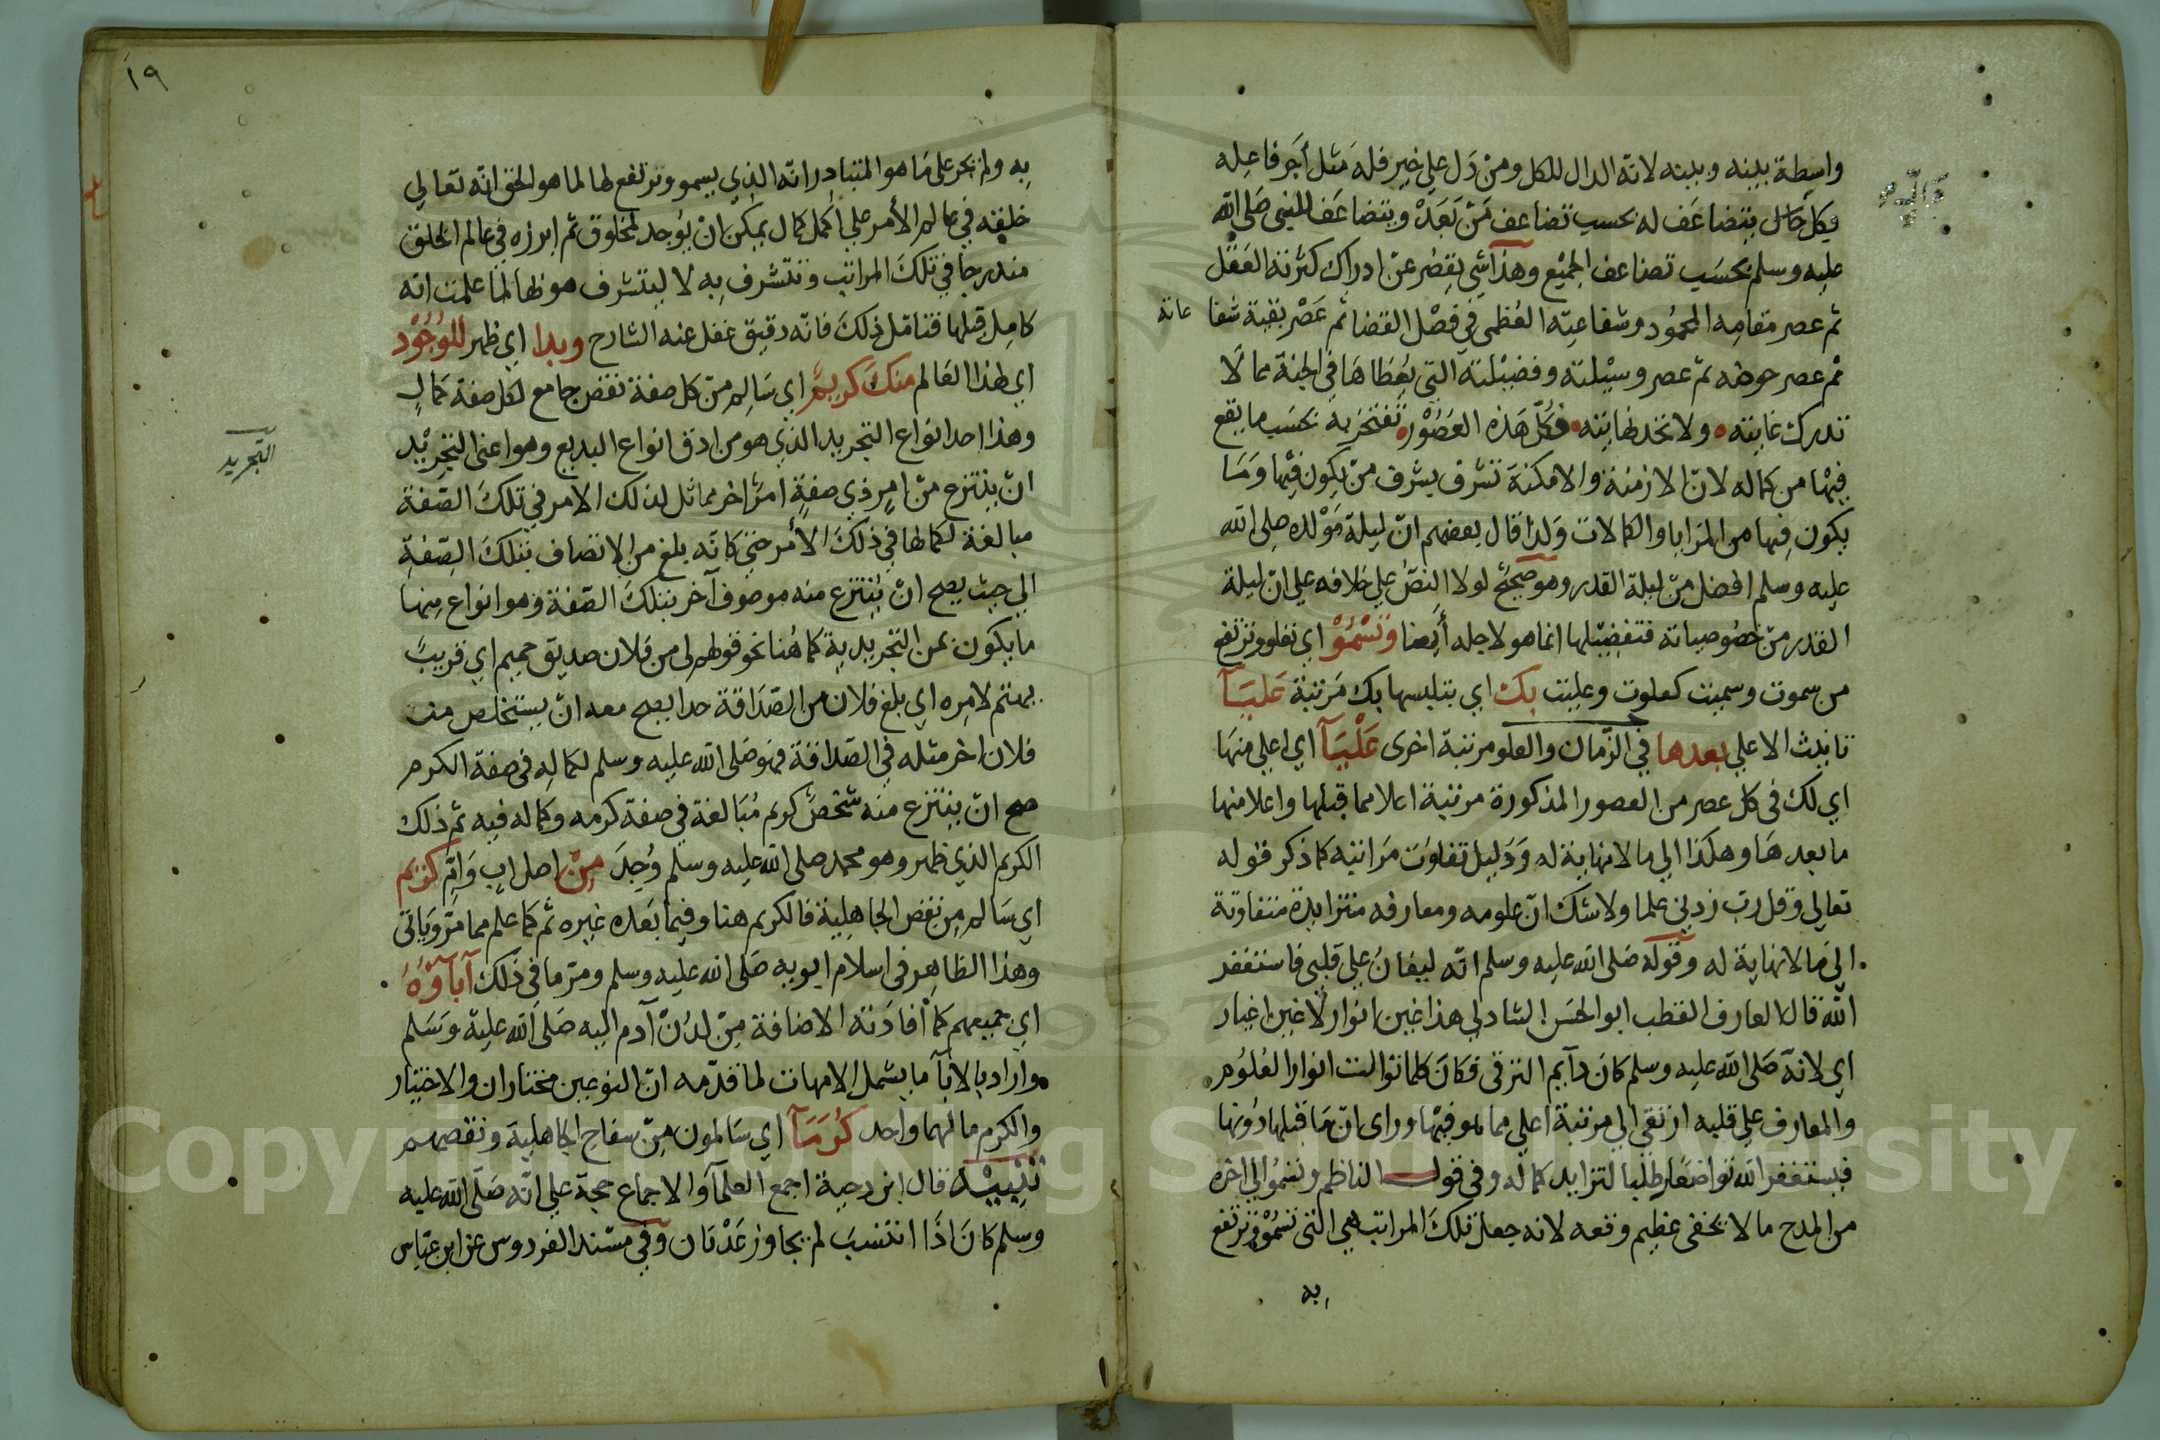 واسطة بينه وبينه لانه الدال للكل ومن دل علي خير فله مثل أجر فاعله
فكل حاصل يتضاعف له بحسب تضاعف من بعده ويتضاعف للنبي صلي الله
عليه وسلم بحسب تضاعف الجميع وهذا شي يقصر عن ادراك كثرته العقل
ثم عصر مقامه المحمود وشفاعته العظمى في فصل القضا ثم عصر بقية شفا
عاته
ثم عصر حوضه ثم عصر وسيلته وفضيلته التي يعطاها في الجنة مما لا
تدرك غايته ولا تحد نهايته فكل هذه العصور تفتخر به بحسب ما يقع
فيها من كماله لان الازمنة والامكنة تشرف بشرف من يكون فيها وما
يكون فيها من المزايا والكمالات ولذا قال بعضهم ان ليلة مولده صلى الله
عليه وسلم افضل من ليلة القدر وهو صحيح لولا النص علي خلافه علي ان ليلة
القدر من خصوصياته فتفضيلها انما هو لاجله أيضا وتسمو اي تعلو وترتفع
من سموت وسميت كعلوت وعليت بك اي بتلبسها بك مرتبة عليآ
تانيث الاعلي بعدها في الزمان والعلو مرتبة اخرى عليآ اي اعلي منها
اي لك في كل عصر من العصور المذكورة مرتبة اعلا مما قبلها واعلا منها
ما بعدها وهكذا الي ما لا نهاية له ودليل تفاوت مراتبه كما ذكر قوله
تعالي وقل رب زدني علما ولا شك ان علومه ومعارفه متزايدة متفاوتة
الي ما لا نهاية له وقوله صلى الله عليه وسلم انه ليغان علي قلبي فاستغفر
الله قال العارف القطب ابو الحسن الشادلي هذا غين انوار لا غين اغيار
اي لانه صلى الله عليه وسلم كان دآيم الترقي فكان كلما توالت انوار العلوم
والمعارف علي قلبه ارتقي الي مرتبة اعلي مما هو فيها وراى ان ما قبلها دونها
فيستغفر الله تواضعا وطلبا لتزايد كماله وفي قول الناظم وتسمو الي اخره
من المدح ما لا يخفى عظيم وقعه لانه جعل تلك المراتب هي التي تسمو وترتفع
به
١٩
به ولم يجر على ما هو المتبادر انه الذي يسمو ويرتفع لها لما هو الحق انه تعالي
خلقه في عالم الأمر علي اكمل كمال يمكن ان يوجد لمخلوق ثم ابرزه في عالم الخلق
مندرجا في تلك المراتب وتتشرف به لا ليتشرف هو بها لما علمت انه
كامل قبلها فتامل ذلك فانه دقيق غفل عنه الشارح وبدا اي ظهر للوجود
اي لهذا العالم منك كريم اي سالم من كل صفة نقص جامع لكل صفة كمال
وهذا احد انواع التجريد الذي هو من ادق انواع البديع وهو اعني التجريد
التجريد
ان ينتزع من امر ذي صفة امر اخر مماثل لذلك الامر في تلك الصفة
مبالغة لكمالها في ذلك الأمر حتي كانه بلغ من الاتصاف بتلك الصفة
الي حيث يصح ان ينتزع منه موصوف آخر بتلك الصفة وهو انواع منها
ما يكون بمن التجريدية كما هنا نحو قولهم لى من فلان صديق حميم اي قريب
يهتم لامره اي بلغ فلان من الصداقة حدا يصح معه ان يستخلص منه
فلان اخر مثله في الصداقة فهو صلى الله عليه وسلم لكماله في صفة الكرم
صح ان ينتزع منه شخص كريم مبالغة في صفة كرمه وكماله فيه ثم ذلك
الكريم الذي ظهر وهو محمد صلى الله عليه وسلم وجد من اصل اب وام كريم
اي سالم من نقص الجاهلية فالكريم هنا وفيما بعده غيره ثم كما علم مما مر وياتى
وهذا الظاهر في اسلام ابويه صلى الله عليه وسلم ومر ما في ذلك آباؤه
اي جميعهم كما أفادته الاضافة من لدن آدم اليه صلى الله عليه وسلم
واراد بالابآ ما يشمل الامهات لما قدمه ان النوعين مختاران والاختيار
والكرم مالهما واحد كرمآ اي سالمون من سفاح الجاهلية ونقصهم
تنبيه قال ابن دحية اجمع العلمآ والاجماع حجة علي انه صلى الله عليه
وسلم كان اذا انتسب لم يجاوز عدنان وفي مسند الفردوس عن ابن عباس
Copyright © King Saud University
1957